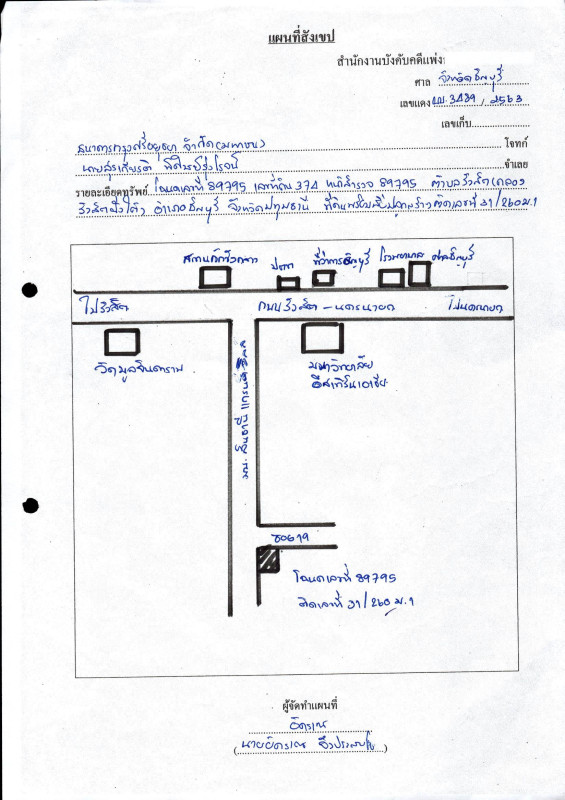 แผนที่สังเขป
สำนักงานบังคับคดีแพ่ง
ศาล จังหวัดธัญบุรี
เลขแดง ผบ.3489 / 2563
เลขเก็บ
ธนาคารกรุงศรีอยุธยา จำกัด(มหาชน) โจทก์
นายสุรเกียรติ จำเลย
รายละเอียดทรัพย์ โฉนดเลขที่ 89795 เลขที่ดิน 374 หน้าสำรวจ 89795 ตำบลรังสิต(คลอง
รังสิตฝั่งใต้) อำเภอธัญบุรี จังหวัดปทุมธานี ที่ดินพร้อมสิ่งปลูกสร้างติดเลขที่ 31/260 ม.1
ปตท ที่ว่าการธัญบุรี โรงพยาบาล ศาลธัญบุรี
ไปรังสิต ถนนรังสิต - นครนายก ไปนครนายก
วัดมูลจินดาราม
มหาวิทยาลัย
อีสเทิร์นเอเชีย
ซอย 19
โฉนดเลขที่ 89795
ติดเลขที่ 31/260 ม.1
ผู้จัดทำแผนที่